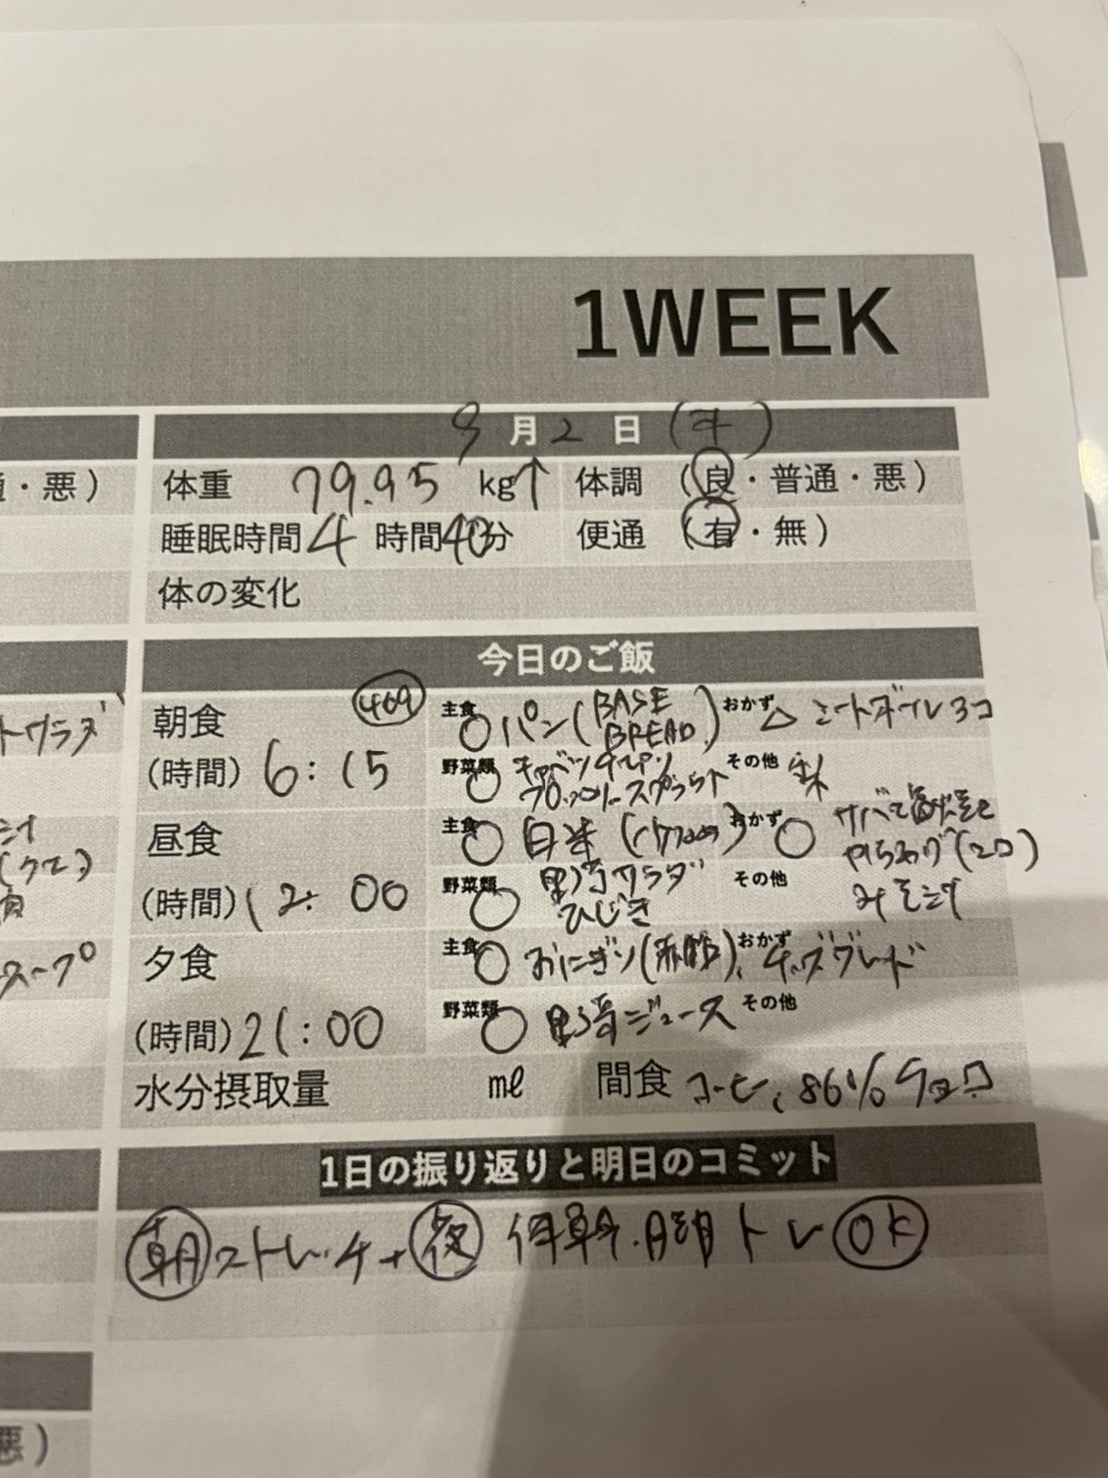 1WEEK
9月2日(木)
通・悪)
体重 79.95 kg↑ 体調 (良・普通・悪)
睡眠時間 4 時間 40分 便通 (有・無)
体の変化
今日のご飯
朝食 469 主食 ○ パン(BASE BREAD) おかず △ ミートボール3コ
(時間) 6:15 野菜類 ○ キャベツ ブロッコリースプラウト その他 梨
昼食 主食 ○ 白米 おかず ○ サバ
(時間) 12:00 野菜類 ○ 野菜サラダ ひじき その他
夕食 主食 ○ おにぎり(赤飯)、 おかず
(時間) 21:00 野菜類 ○ 野菜ジュース その他
スープ
水分摂取量 ml 間食 コーヒー、86%チョコ
1日の振り返りと明日のコミット
朝ストレッチ+夜 体幹・腸トレ OK
悪)